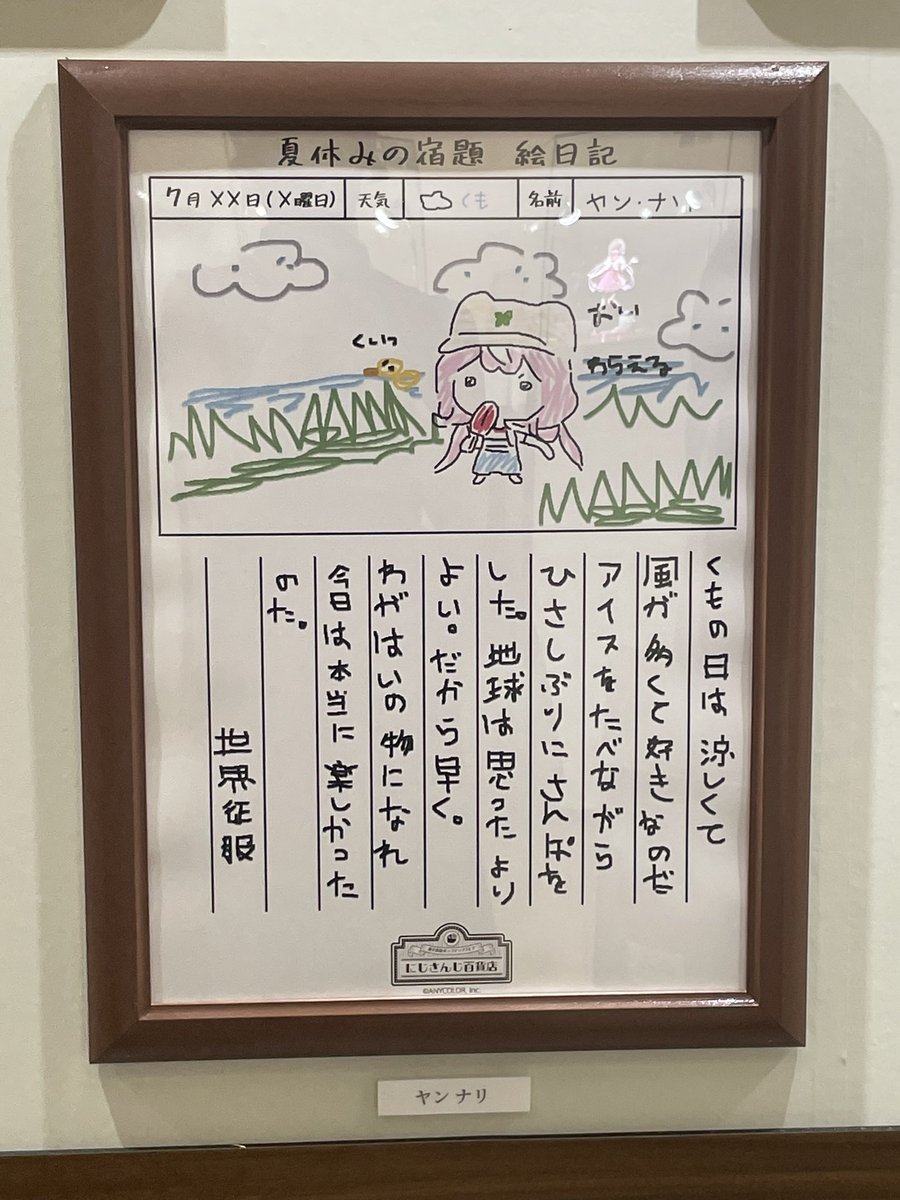 夏休みの宿題 絵日記
7月××日(×曜日) 天気 くも 名前 ヤン・ナリ
くいっ
おい
わらえる
くもの日は涼しくて
風が多くて好きなのだ
アイスをたべながら
ひさしぶりにさんぽを
した。地球は思ったより
よい。だから早く。
わがはいの物になれ
今日は本当に楽しかった
のた。
世界征服
にじさんじ百貨店
©ANYCOLOR, Inc.
ヤン ナリ